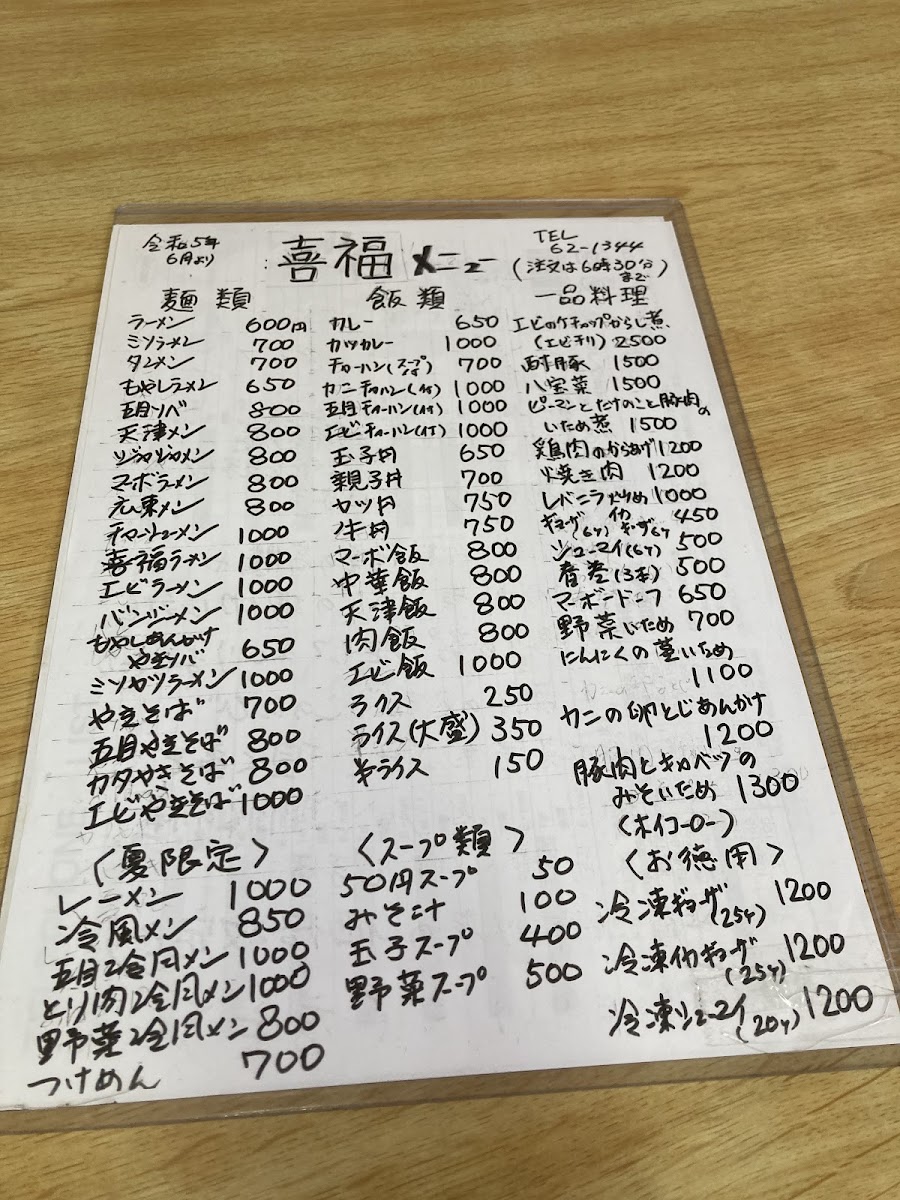 令和5年
6月より
喜福 メニュー
TEL
62-1344
(注文は6時30分まで)
麺類
ラーメン 600円
ミソラーメン 700
タンメン 700
もやしラーメン 650
五目ソバ 800
天津メン 800
ジャジャメン 800
マーボラーメン 800
広東メン 800
チャーシューメン 1000
喜福ラーメン 1000
エビラーメン 1000
バンジーメン 1000
もやしあんかけ
やきソバ 650
ミソカツラーメン 1000
やきそば 700
五目やきそば 800
カタやきそば 800
エビやきそば 1000
飯類
カレー 650
カツカレー 1000
チャーハン(スープ付) 700
カニチャーハン(付) 1000
五目チャーハン(付) 1000
エビチャーハン(付) 1000
玉子丼 650
親子丼 700
カツ丼 750
牛丼 750
マーボ飯 800
中華飯 800
天津飯 800
肉飯 800
エビ飯 1000
ライス 250
ライス(大盛) 350
半ライス 150
一品料理
エビのケチャップからし煮
(エビチリ) 2500
酢豚 1500
八宝菜 1500
ピーマンとたけのこと豚肉の
いため煮 1500
鶏肉のからあげ 1200
焼き肉 1200
レバニラ炒め 1000
ギョーザ(6ヶ) イカギョーザ6ヶ 450
シューマイ(6ヶ) 500
春巻(3本) 500
マーボードーフ 650
野菜いため 700
にんにくの茎いため
1100
カニの卵とじあんかけ
1200
豚肉とキャベツの
みそいため 1300
(ホイコーロー)
〈夏限定〉
レーメン 1000
冷風メン 850
五目冷風メン 1000
とり肉冷風メン 1000
野菜冷風メン 800
つけめん 700
〈スープ類〉
50円スープ 50
みそ汁 100
玉子スープ 400
野菜スープ 500
〈お徳用〉
冷凍ギョーザ(25ヶ) 1200
冷凍イカギョーザ(25ヶ) 1200
冷凍シューマイ(20ヶ) 1200